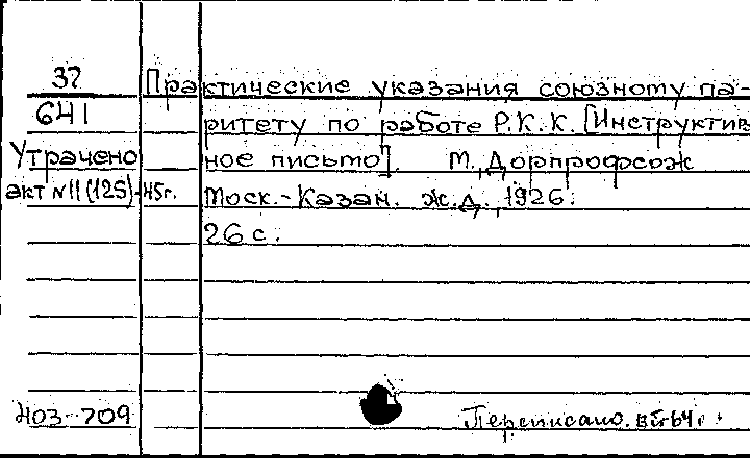 37 Практические указания союзному па-
641 ритету по работе Р.К.К. [Инструктив
Утрачено ное письмо]. М., Дорпрофсож
акт №11(125)-45г. Моск.-Казан. ж.д., 1926.
26 с.
Н03-709 Переписано.